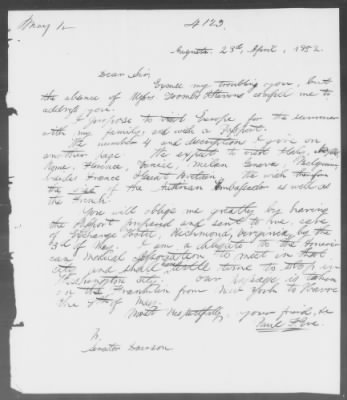 May 1/2
4123.
Augusta 28th, April, 1852.
Dear Sir,
Excuse my troubling you, but
the absence of Messrs Toombs & Stevens compel me to
address you.
I propose to visit Europe for the summer
with my family, and wish a Passport.
The number 4 and description I give on
another page. We expect to visit Italy,
Rome, Florence, Venice, Milan, Geneva, Belgium,
France & Great Britain. We wish therefore
the visé of the Austrian Ambassador as well as
the French.
You will oblige me greatly by having
the Passport prepared and sent to me, care
Exchange Hotel, Richmond, Virginia, by the
3d of May. I am a delegate to the Ameri-
can Medical Association to meet in that
City, and shall have little time to stop in
Washington City. Our passage is taken
in the Franklin from New York to Havre
the 8th of May.
Most Respectfully, your friend, &c
Paul F. Eve.
To
Senator Dawson.